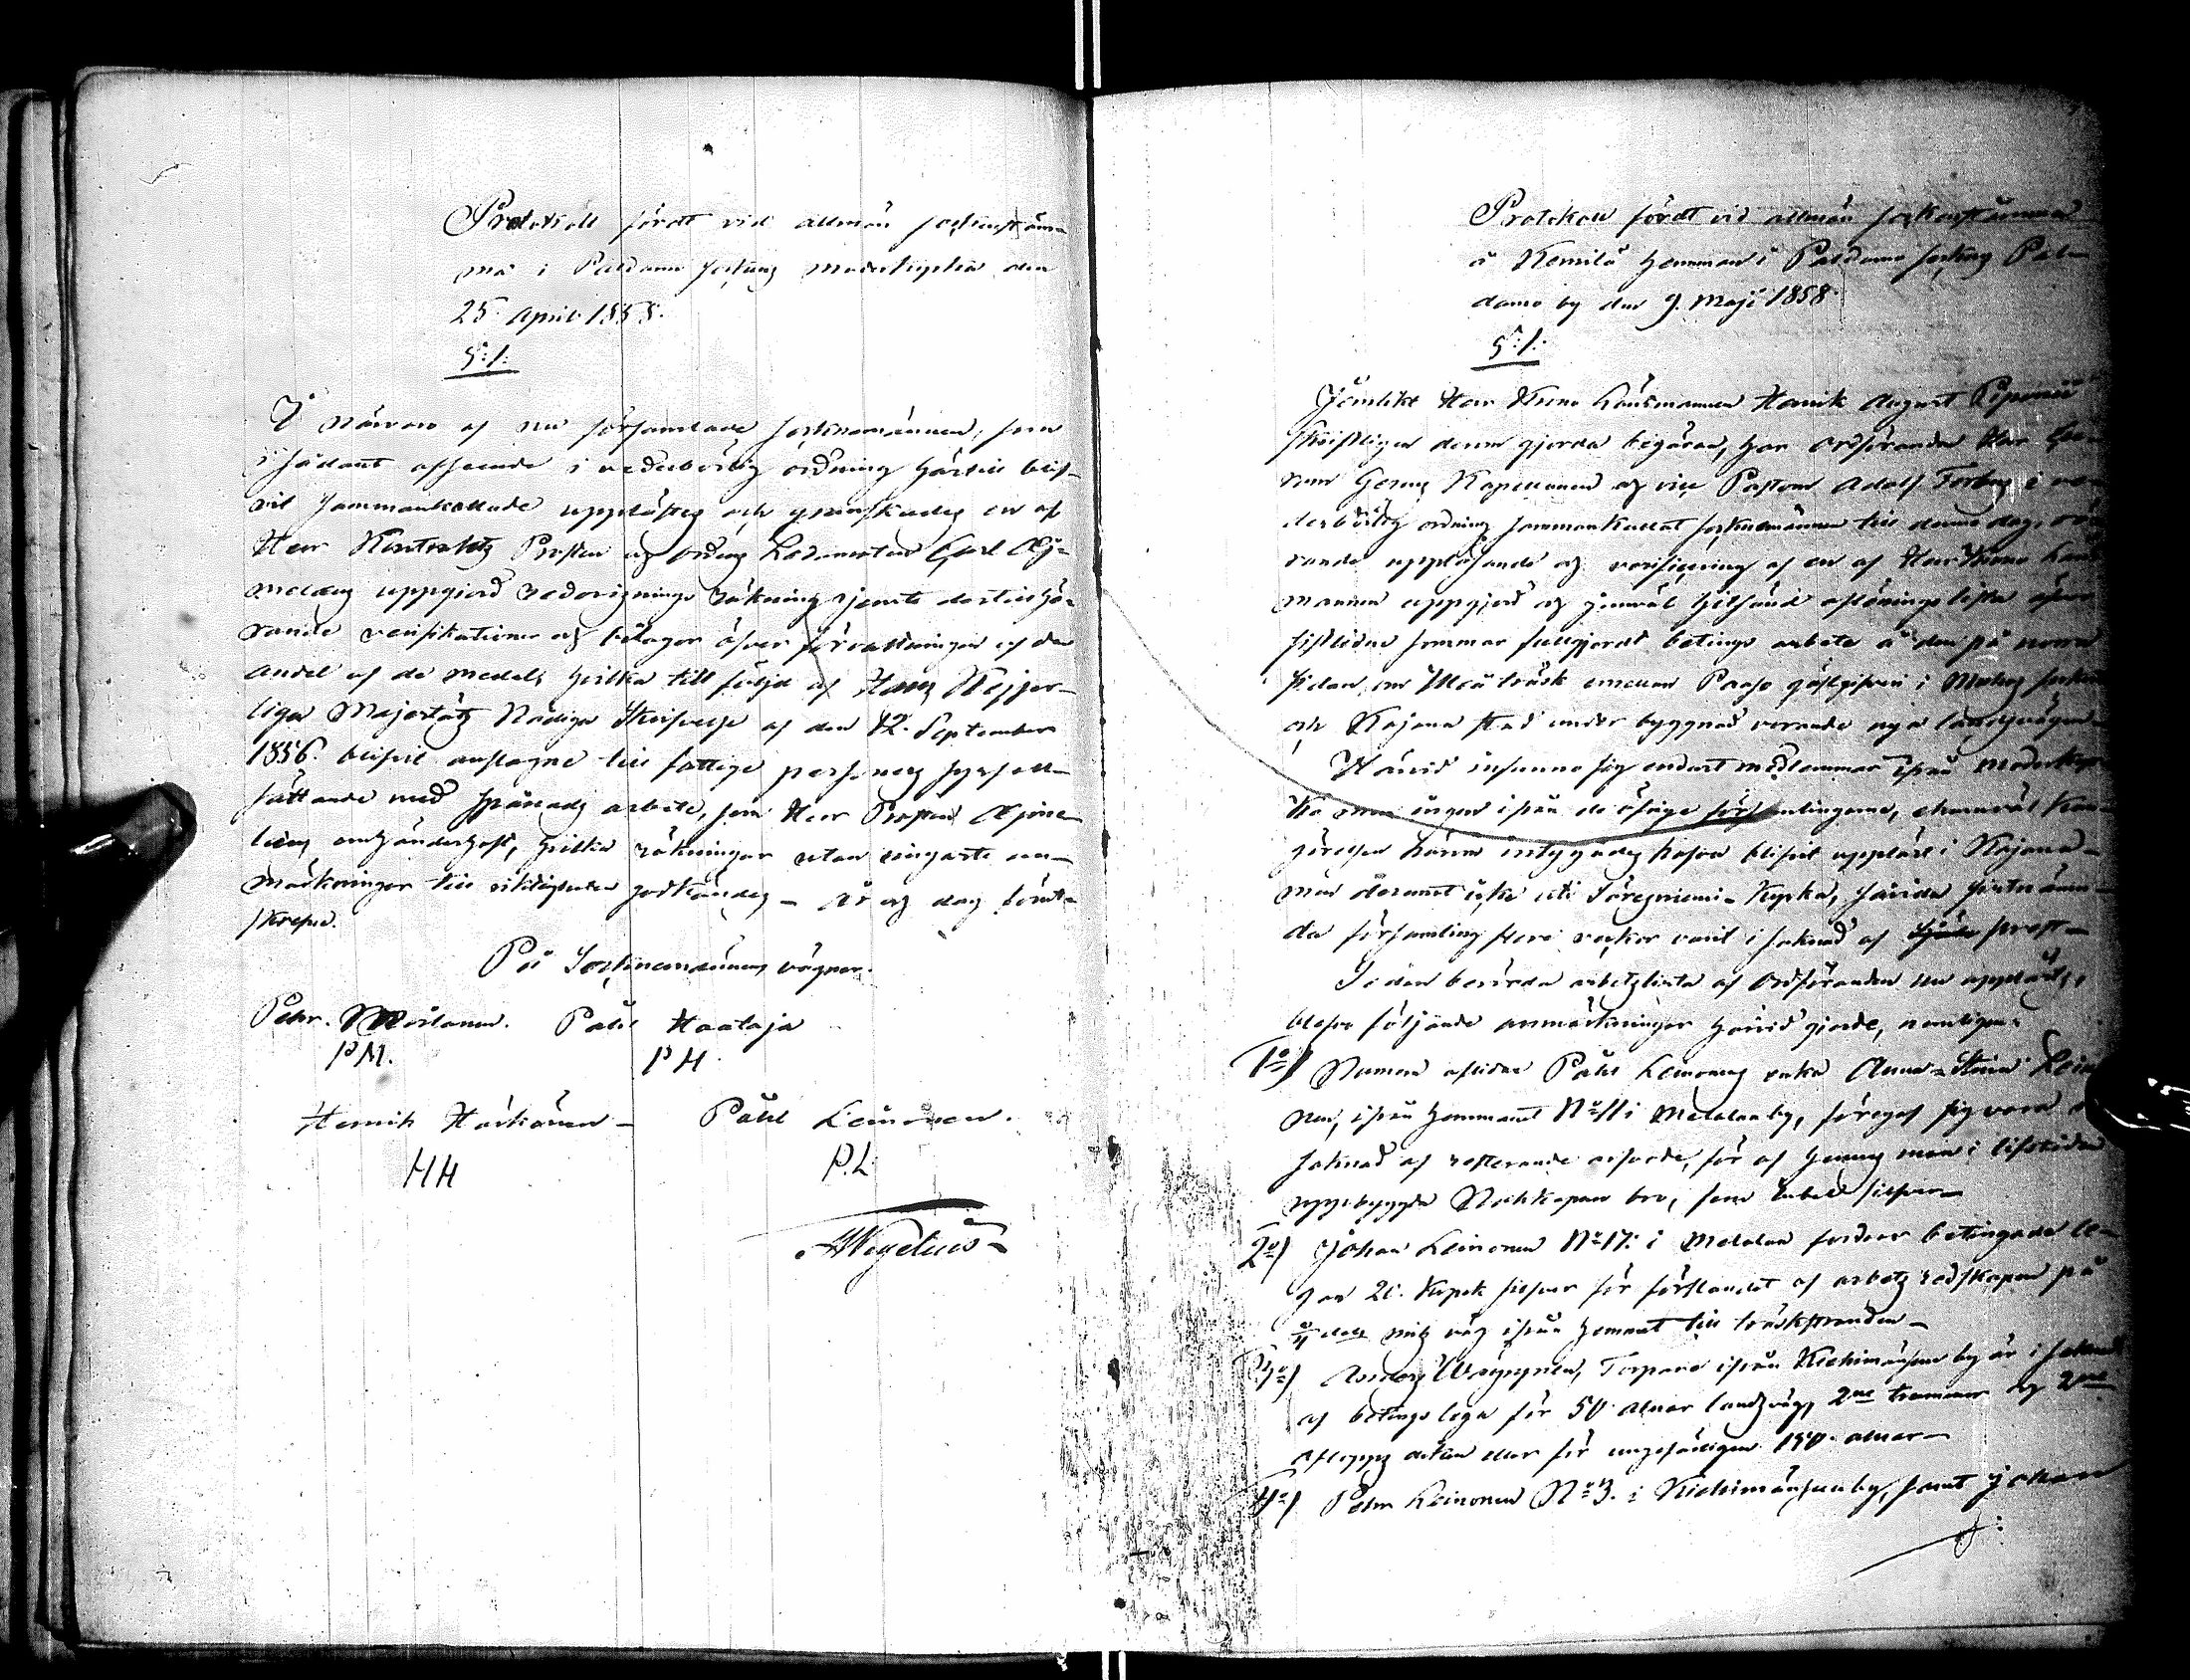 Protokoll fördt vid allmän sockenstäm-
ma i Paldamo Sockens moderkyrka den
25 April 1858.
§:1:
I närvaro af nu församlade sockenemännen, som
i sådant afseende i vederbörlig ordning härtill blif-
vit sammankallade upplästes och granskades en af
Herr Kontrakts Prosten och Ordens Ledamoten Carl Aj-
melæus uppgjord redovisnings räkning jemte dertill hö-
rande verifikationer och bilagor öfver förvaltningen af den
andel af de medel, hvilka till följd af Hans Kejser-
liga Majestäts Nådiga Skrifvelse af den 12. September
1856. blifvit anslagne till fattige personers syssell-
sättande med spånads arbete, som Herr Prosten Ajme-
læus omhänderhaft, hvilka räkningar utan ringaste an-
märkningar till riktigheten godkändes - År och dag förut-
skrefne.
På Sockenemännens vägnar.
Pehr Möilanen. Påhl Haataja
PM. PH.
Henrik Härkönen - Påhl Leinonen.
HH P.L.
AWegelius
Protokoll fördt vid allmän sockenstämma
å Kemilä hemman i Paldamo socken Pal-
damo by den 9. Maji 1858.
§:1:
Jemlikt Herr Krono Länsmannen Henrik August
skriftligen derom gjorda begäran, har Ordföranden Herr
Kapellanen och vice Pastorn Adolf Forbus i ve-
derbörlig ordning sammankallat sockenemännen till denna dag, rö-
rande uppläsande och verificering af en af Herr Krono Läns-
mannen uppgjord och hitsänd aflönings lista öfver
sistlidne sommar fullgjordt betings arbete å den på norra
sidan om Uleå träsk emellan Paaso gästgifveri i Muhos socken
och Kajana stad under byggnad varande nya landsvägen
Härvid infunno sig endast medlemmar ifrån moderkyr-
ka men ingen ifrån de öfrige församlingarne, ehuruväl kun-
görelsen härom intygades hafva blifvit uppläst i Kajana -
men deremot icke uti Säresniemi Kyrka, sistnämn-
da församling flere veckor varit i saknad af prest -
Sedan berörda arbetslista af Ordföranden nu upplästs,
blefvo följande anmärkningar härvid gjorde, nemligen:
1o) Numera aflidne Påhl Leinonens enka Anna Stina Leino-
nen, ifrån hemmanet No 11 i Melalan by, föregaf sig vara i
saknad af resterande för af hennes man i lifstiden
nybyggda bro, fem Rubel silfver -
2o) Johan Leinonen No 17: i Melalan fordrar betingade le-
gan 20. Kopek silfver för förslandet af arbets redskapen på
mils väg ifrån hemmet till träskstranden -
3o) Anders Väyrynen, Torpare ifrån Kiehimänsuu by är i saknad
af betings lega för 50 alnar landsväg, 2ne trummor och 2ne
aflopps diken eller för ungefärligen 150. alnar -
4o) Pehr Leinonen No 3. i Kiehimänsuu by, samt Johan